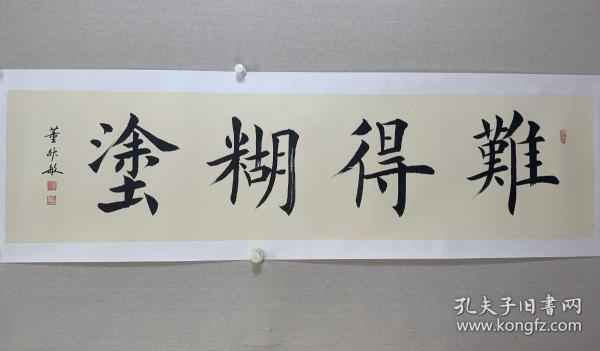 難得糊塗
董欣敏
孔夫子旧書网
www.kongfz.com